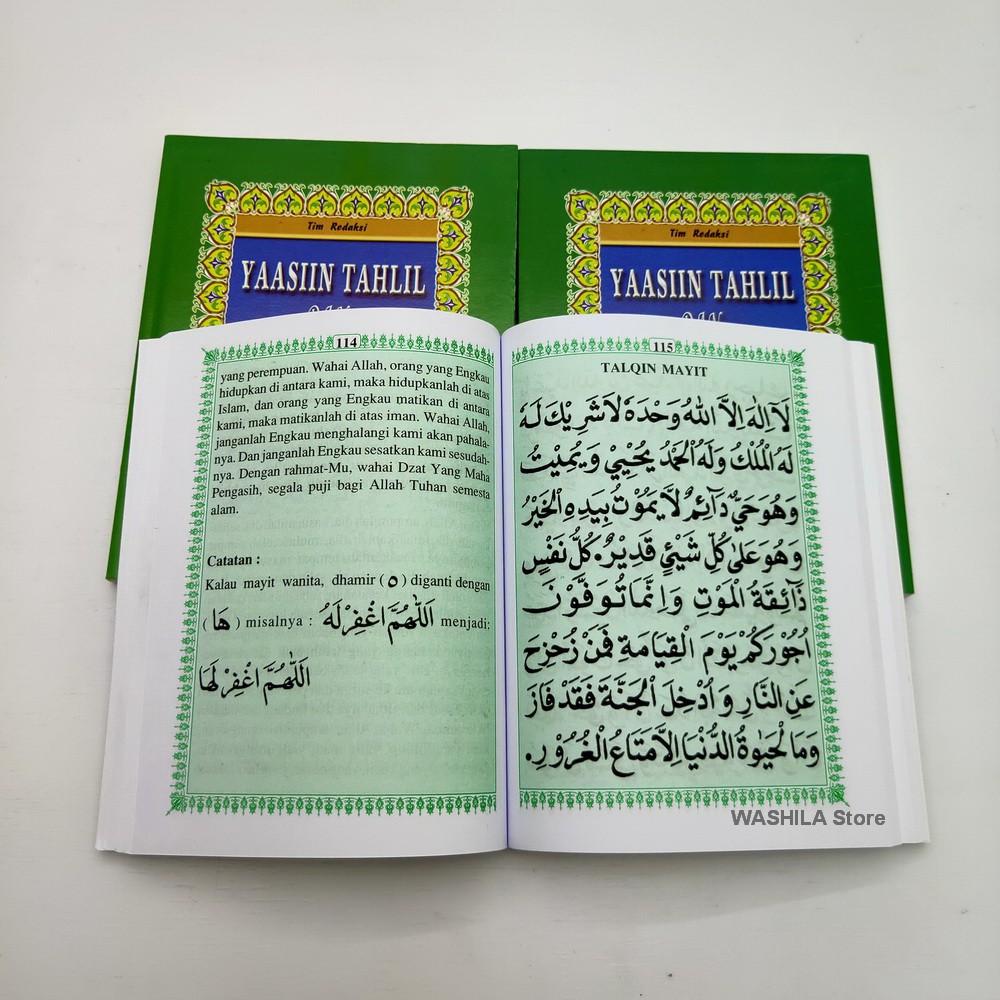 Tim Redaksi
YAASIIN TAHLIL
Tim Redaksi
YAASIIN TAHLIL
114
yang perempuan. Wahai Allah, orang yang Engkau
hidupkan di antara kami, maka hidupkanlah di atas
Islam, dan orang yang Engkau matikan di antara
kami, maka matikanlah di atas iman. Wahai Allah,
janganlah Engkau menghalangi kami akan pahala-
nya. Dan janganlah Engkau sesatkan kami sesudah-
nya. Dengan rahmat-Mu, wahai Dzat Yang Maha
Pengasih, segala puji bagi Allah Tuhan semesta
alam.
Catatan :
Kalau mayit wanita, dhamir ( ه ) diganti dengan
( هَا ) misalnya : اَللّٰهُمَّ اغْفِرْلَهُ menjadi:
اَللّٰهُمَّ اغْفِرْلَهَا
115
TALQIN MAYIT
لَآاِلٰهَ اِلاَّ اللهُ وَحْدَهُ لَاشَرِيْكَ لَهُ
لَهُ الْمُلْكُ وَلَهُ الْحَمْدُ يُحْيِيْ وَيُمِيْتُ
وَهُوَحَيٌّ دَآئِمٌ لَّا يَمُوْتُ بِيَدِهِ الْخَيْرُ
وَهُوَعَلىٰ كُلِّ شَيْئٍ قَدِيْرٌ. كُلُّ نَفْسٍ
ذَآئِقَةُ الْمَوْتِ وَاِنَّمَا تُوَفَّوْنَ
اُجُوْرَكُمْ يَوْمَ الْقِيَامَةِ فَمَنْ زُحْزِحَ
عَنِ النَّارِ وَ اُدْخِلَ الْجَنَّةَ فَقَدْ فَازَ
وَمَالْحَيٰوةُ الدُّنْيَا اِلاَّ مَتَاعُ الْغُرُوْرِ.
WASHILA Store